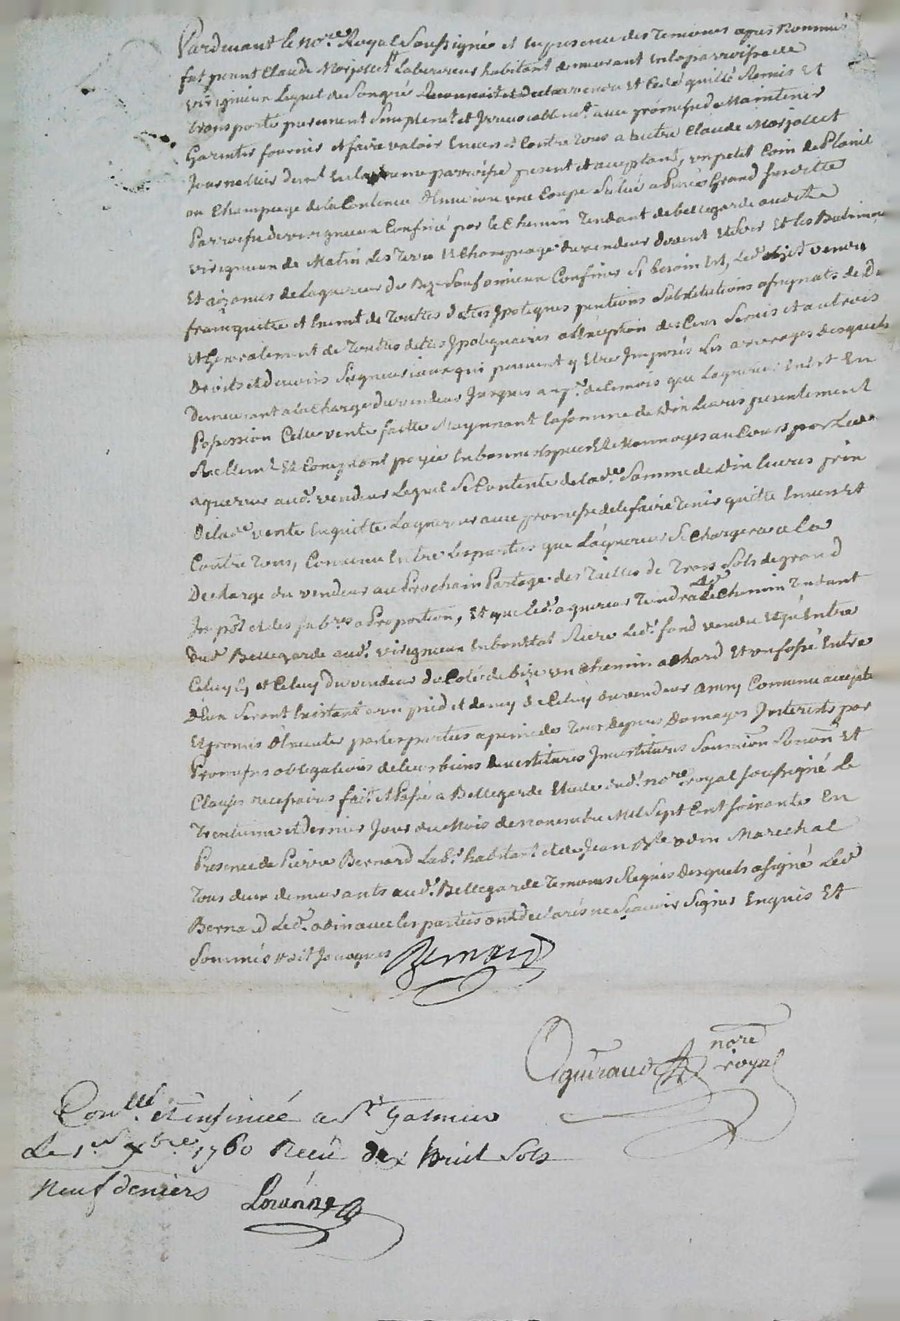 Pardevant le nore Royal Soussigné et en presence des Temoins apres Nommés
fut present Claude Morjollet Laboureur habitant demeurant en la parroisse de
virigneux Lequel de Son gré a vendu et Cedé quitté Remis Et
Transporté purement Simplemt et Irrevocablemt avec promesse de Maintenir
Garantir fournir et faire valoir Envers et Contre Tous a autre Claude Morjollet
Journallier demt En la meme parroisse present et acceptant, un petit Coin de
ou Champeage de la Contenue d'Environ une Coupe Situé
Parroisse de virigneux Confiné par le Chemin Tendant de bellegarde audit
virigneux de Matin les Terre Et Champeage du vendeur de vent Et Soir Et les Batiments
Et aizances de laquereur de Bize Sauf omieux Confiner Si besoin Est, Led. objet vendu
franc quitte et Exemt de Toutes dettes Ipoteques pentions Substitutions
et Generalement de Toutes dettes Ipotequaires a l'Exception des Cens Servis et autres
Droits et devoirs Seigneuriaux qui peuvent y Etre Imposés Les arrerages desquels
Demeurant a la Charge du vendeur Jusques a de Ce mois que Laquereur Entre En
Possession Cette vente faitte Moyennant la somme de Dix Livres presentement
Reellemt Et Comptant payée En bonnes Especes Et Monnoyes au Cours par Led.
aquereur aud. vendeur Lequel Se Contente de lade Somme de Dix livres prix
De lade vente En quitte Laquereur avec promesse de le faire Tenir quitte Envers Et
Contre Tous, Convenu Entre Les parties que Laquereur Se Chargera a La
Decharge du vendeur au Prochain Partage des Tailles de Trois Sols de grand
Impôt et des a Proportion, Et que led. aquereur Tiendra Le Chemin Tendant
dud. Bellegarde aud. virigneux En bon Etat Riere Led. fond vendu Et qu'Entre
Celuy Cy et Celuy du vendeur du Coté de bize un Chemin a Chard Et un fossé Entre
D'Eux Seront a un pied et demy de Celuy du vendeur ainsy Convenu accepté
Et promis d'Executer par les parties a peine de Tous depens Domages Interests par
Promesses obligations de leurs biens devestitures Investitures Soumission Renon. Et
Clauses necessaires fait Et Passé a Bellegarde Etude dud. nore royal soussigné Le
Trentieme et dernier Jour du Mois de novembre Mil Sept Cent Soixante En
Presence de Pierre Bernard Labr. habitant et de Jean Marechal
Tous deux demeurants aud. Bellegarde Temoins Requis Desquels a signé Led.
Bernard Led. avec les parties ont declarés ne Scavoir Signer Enquis Et
Sommés
Bernard
nore
royal
Conllé et insinué a St Galmier
Le 1er xbre 1760 Reçu huit Sols
Neuf deniers